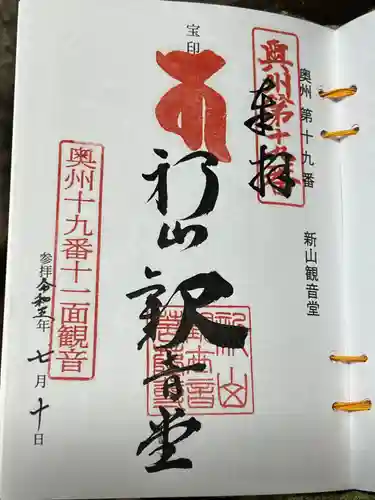 奥州 第十九番 新山観音堂
奥州第十九番
奉拝
宝印
新山観音堂
奥州十九番十一面観音
参拝 令和五年 七月十日